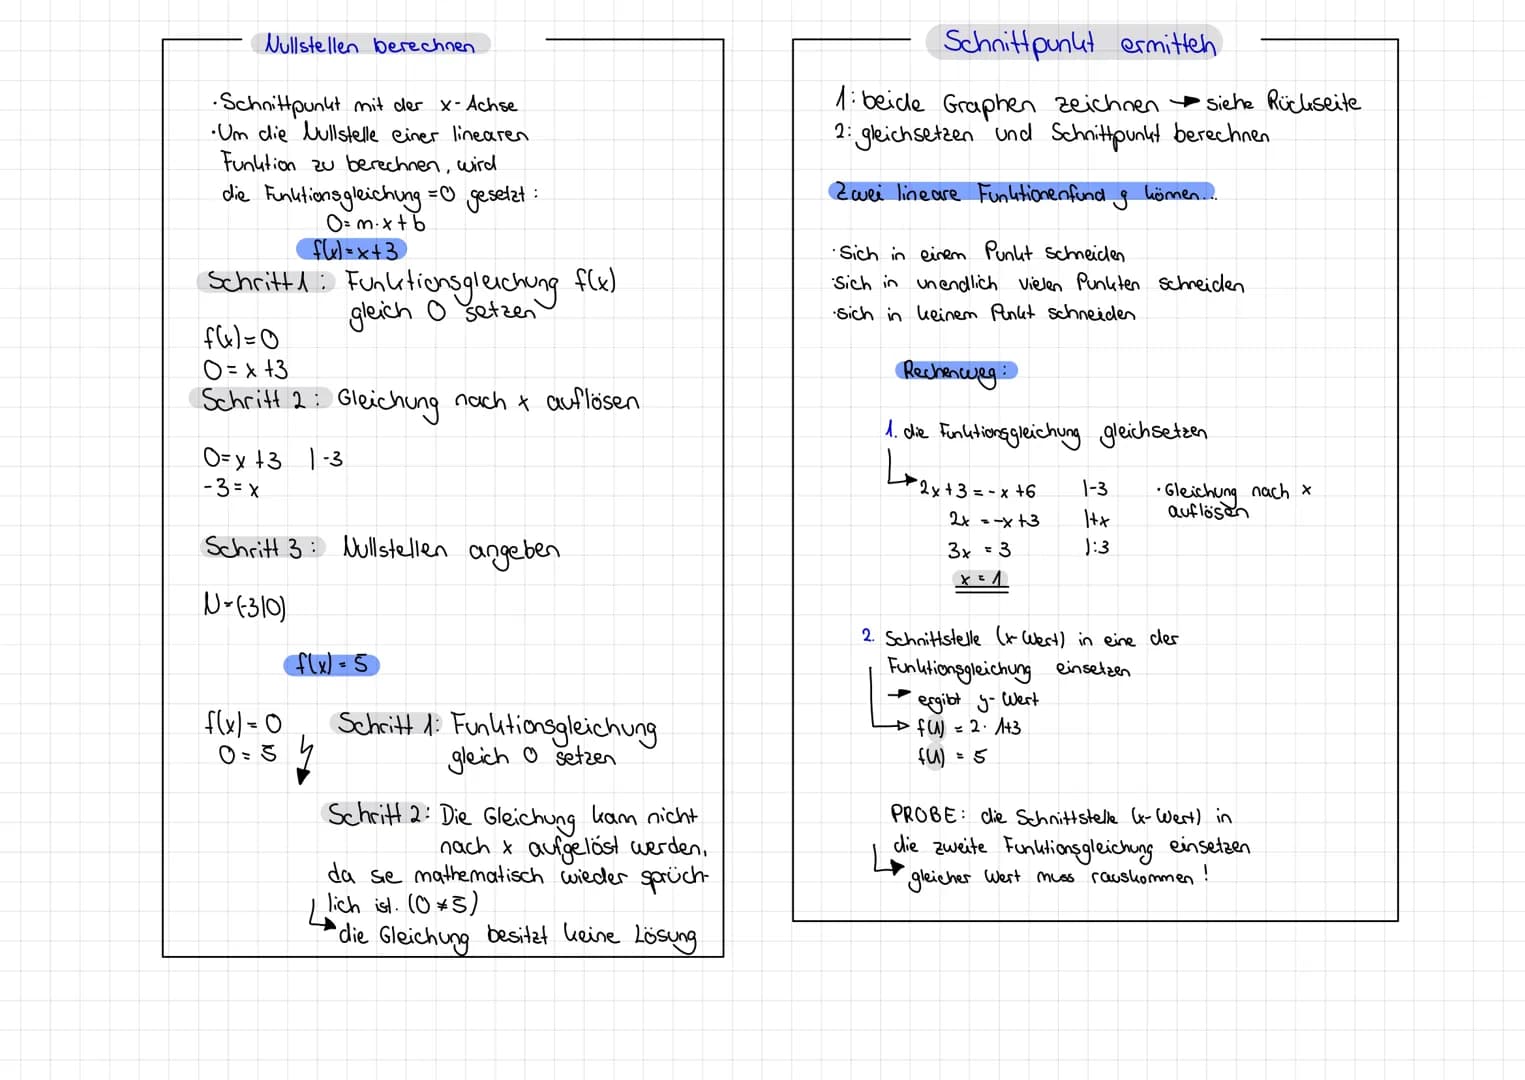 Nullstellen berechnen
·Schnittpunkt mit der x-Achse
·Um die Nullstelle einer linearen
Funktion zu berechnen, wird
die Funktionsgleichung =0 gesetzt:
0= m·x+b
f(x)=x+3
Schritt 1: Funktionsgleichung f(x)
gleich 0 setzen
f(x)=0
0= x +3
Schritt 2: Gleichung nach x auflösen
0=x +3 |-3
-3=x
Schritt 3: Nullstellen angeben
N=(-3|0)
f(x) = 5
f(x) = 0
0 = 5
Schritt 1: Funktionsgleichung
gleich 0 setzen
Schritt 2: Die Gleichung kann nicht
nach x aufgelöst werden,
da sie mathematisch wieder sprüch-
lich ist. (0≠5)
die Gleichung besitzt keine Lösung
Schnittpunkt ermitteln
1: beide Graphen zeichnen → siehe Rückseite
2: gleichsetzen und Schnittpunkt berechnen
Zwei lineare Funktionen f und g können...
·Sich in einem Punkt schneiden
·Sich in unendlich vielen Punkten schneiden
·sich in keinem Punkt schneiden
Rechenweg:
1. die Funktionsgleichung gleichsetzen
2x+3 = -x +6 |-3 ·Gleichung nach x
auflösen
2x = -x +3 |+x
3x = 3 |:3
x = 1
2. Schnittstelle (x-Wert) in eine der
Funktionsgleichung einsetzen
→ ergibt y-Wert
→ f(1) = 2· 1+3
f(1) = 5
PROBE: die Schnittstelle (x-Wert) in
die zweite Funktionsgleichung einsetzen
gleicher Wert muss rauskommen!